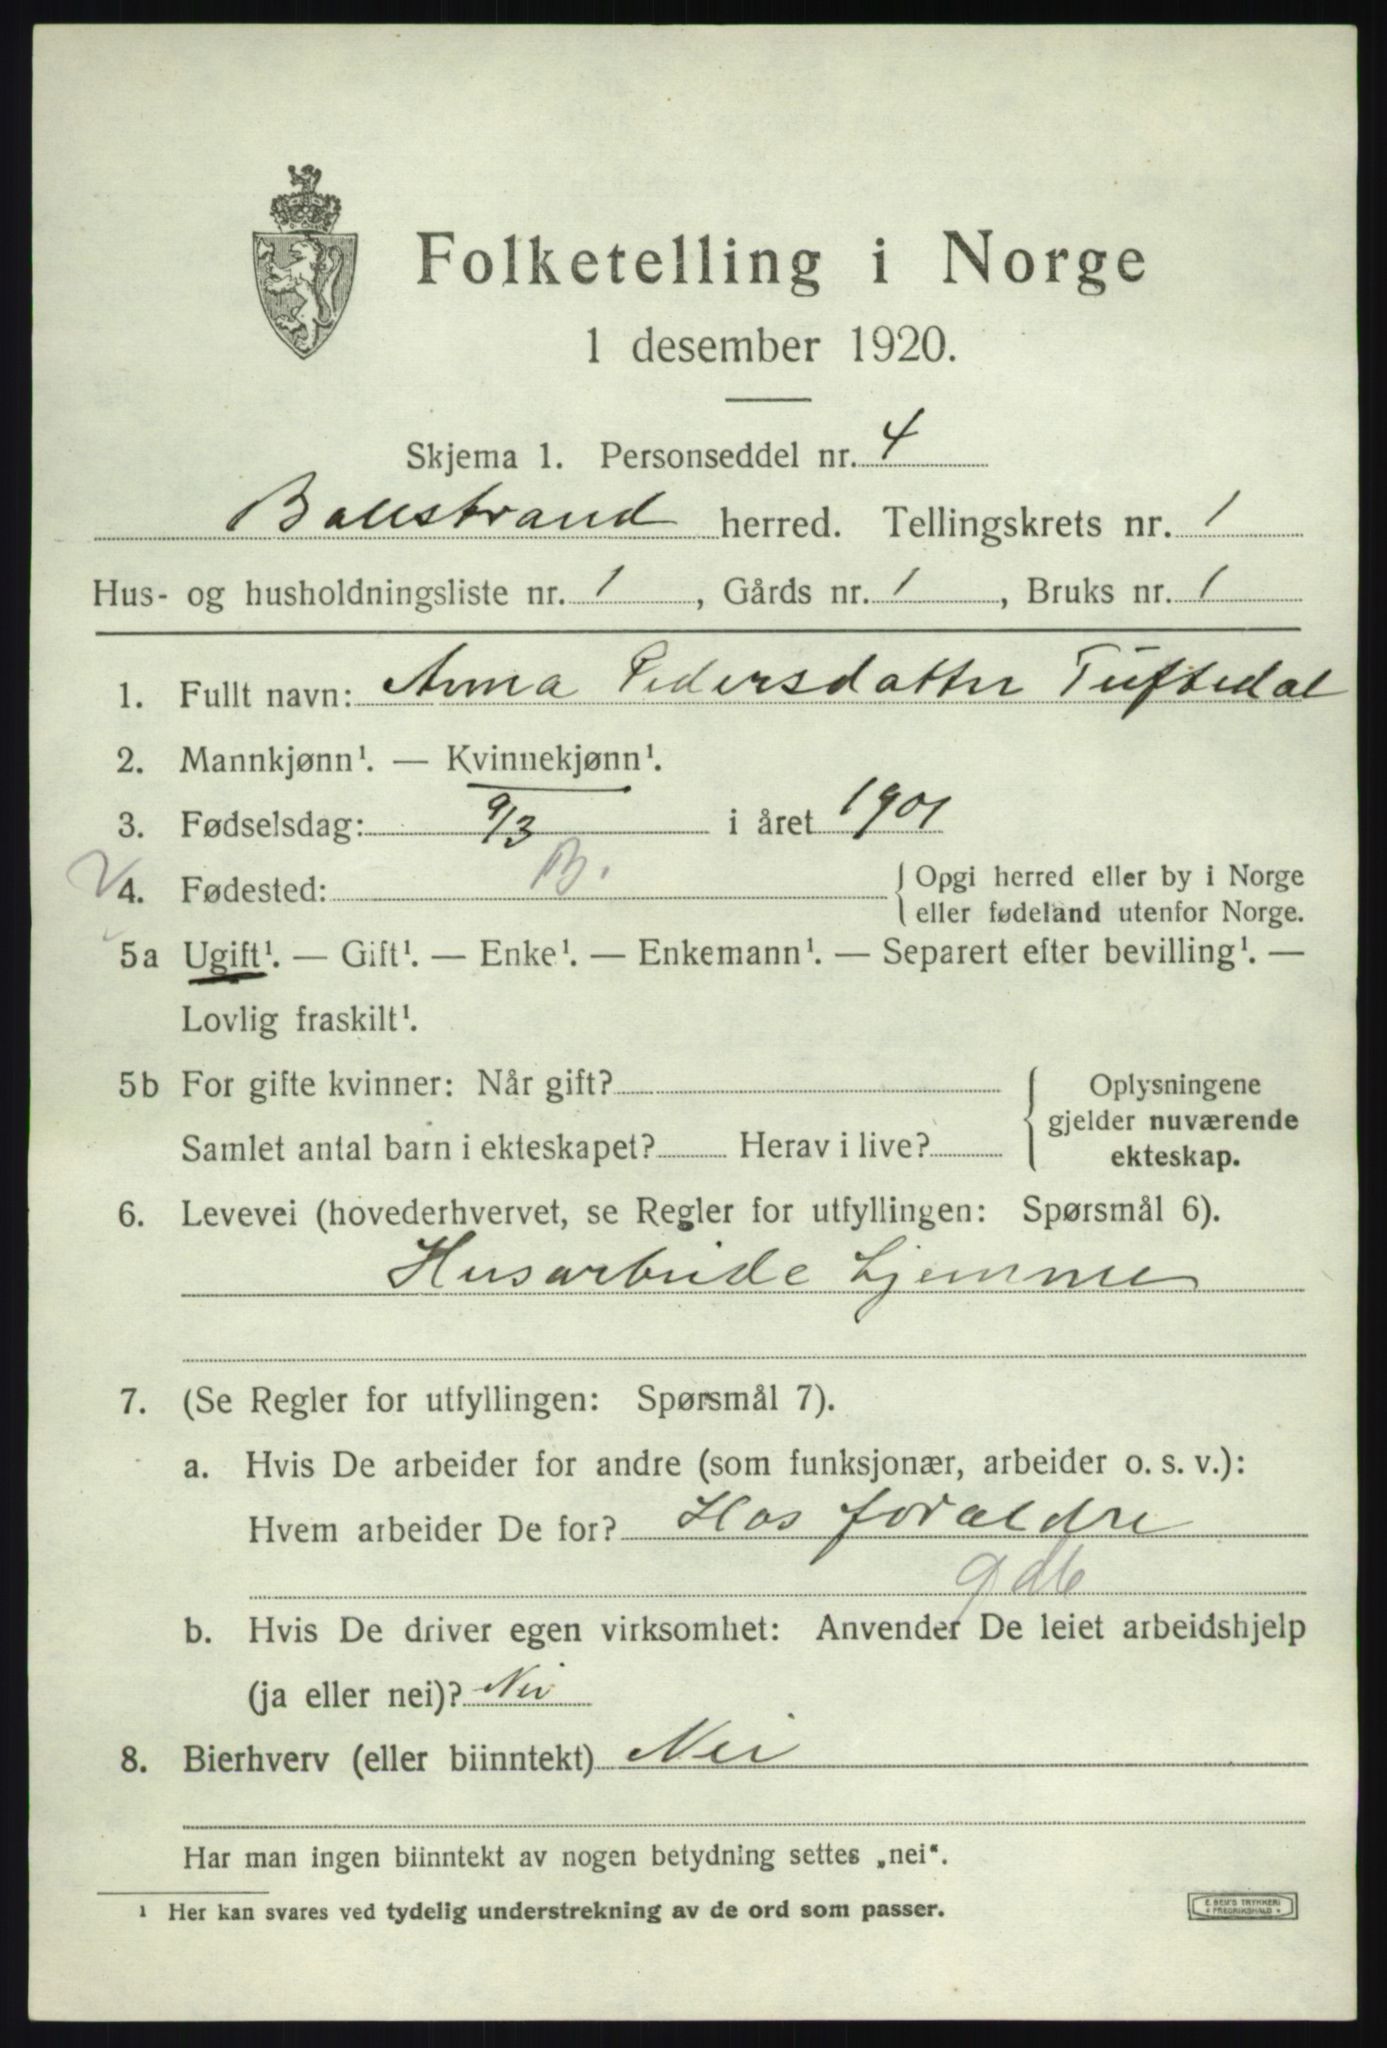 Folketelling i Norge
1 desember 1920.
Skjema 1. Personseddel nr. 4
Balestrand herred. Tellingskrets nr. 1
Hus- og husholdningsliste nr. 1, Gårds nr. 1, Bruks nr. 1
1. Fullt navn: Anna Pedersdatter Tuftedal
2. Mannkjønn¹. — Kvinnekjønn¹.
3. Fødselsdag: 9/3 i året 1901
4. Fødested: B. Opgi herred eller by i Norge
eller fødeland utenfor Norge.
5a Ugift¹. — Gift¹. — Enke¹. — Enkemann¹. — Separert efter bevilling¹. —
Lovlig fraskilt¹.
5b For gifte kvinner: Når gift? Oplysningene
gjelder nuværende
Samlet antal barn i ekteskapet? Herav i live? ekteskap.
6. Levevei (hovederhvervet, se Regler for utfyllingen: Spørsmål 6).
Husarbeide hjemme
7. (Se Regler for utfyllingen: Spørsmål 7).
a. Hvis De arbeider for andre (som funksjonær, arbeider o. s. v.):
Hvem arbeider De for? Hos forældre
b. Hvis De driver egen virksomhet: Anvender De leiet arbeidshjelp
(ja eller nei)? Nei
8. Bierhverv (eller biinntekt) Nei
Har man ingen biinntekt av nogen betydning settes „nei“.
¹ Her kan svares ved tydelig understrekning av de ord som passer.
E. SEM'S TRYKKERI
• FREDRIKSHALD •